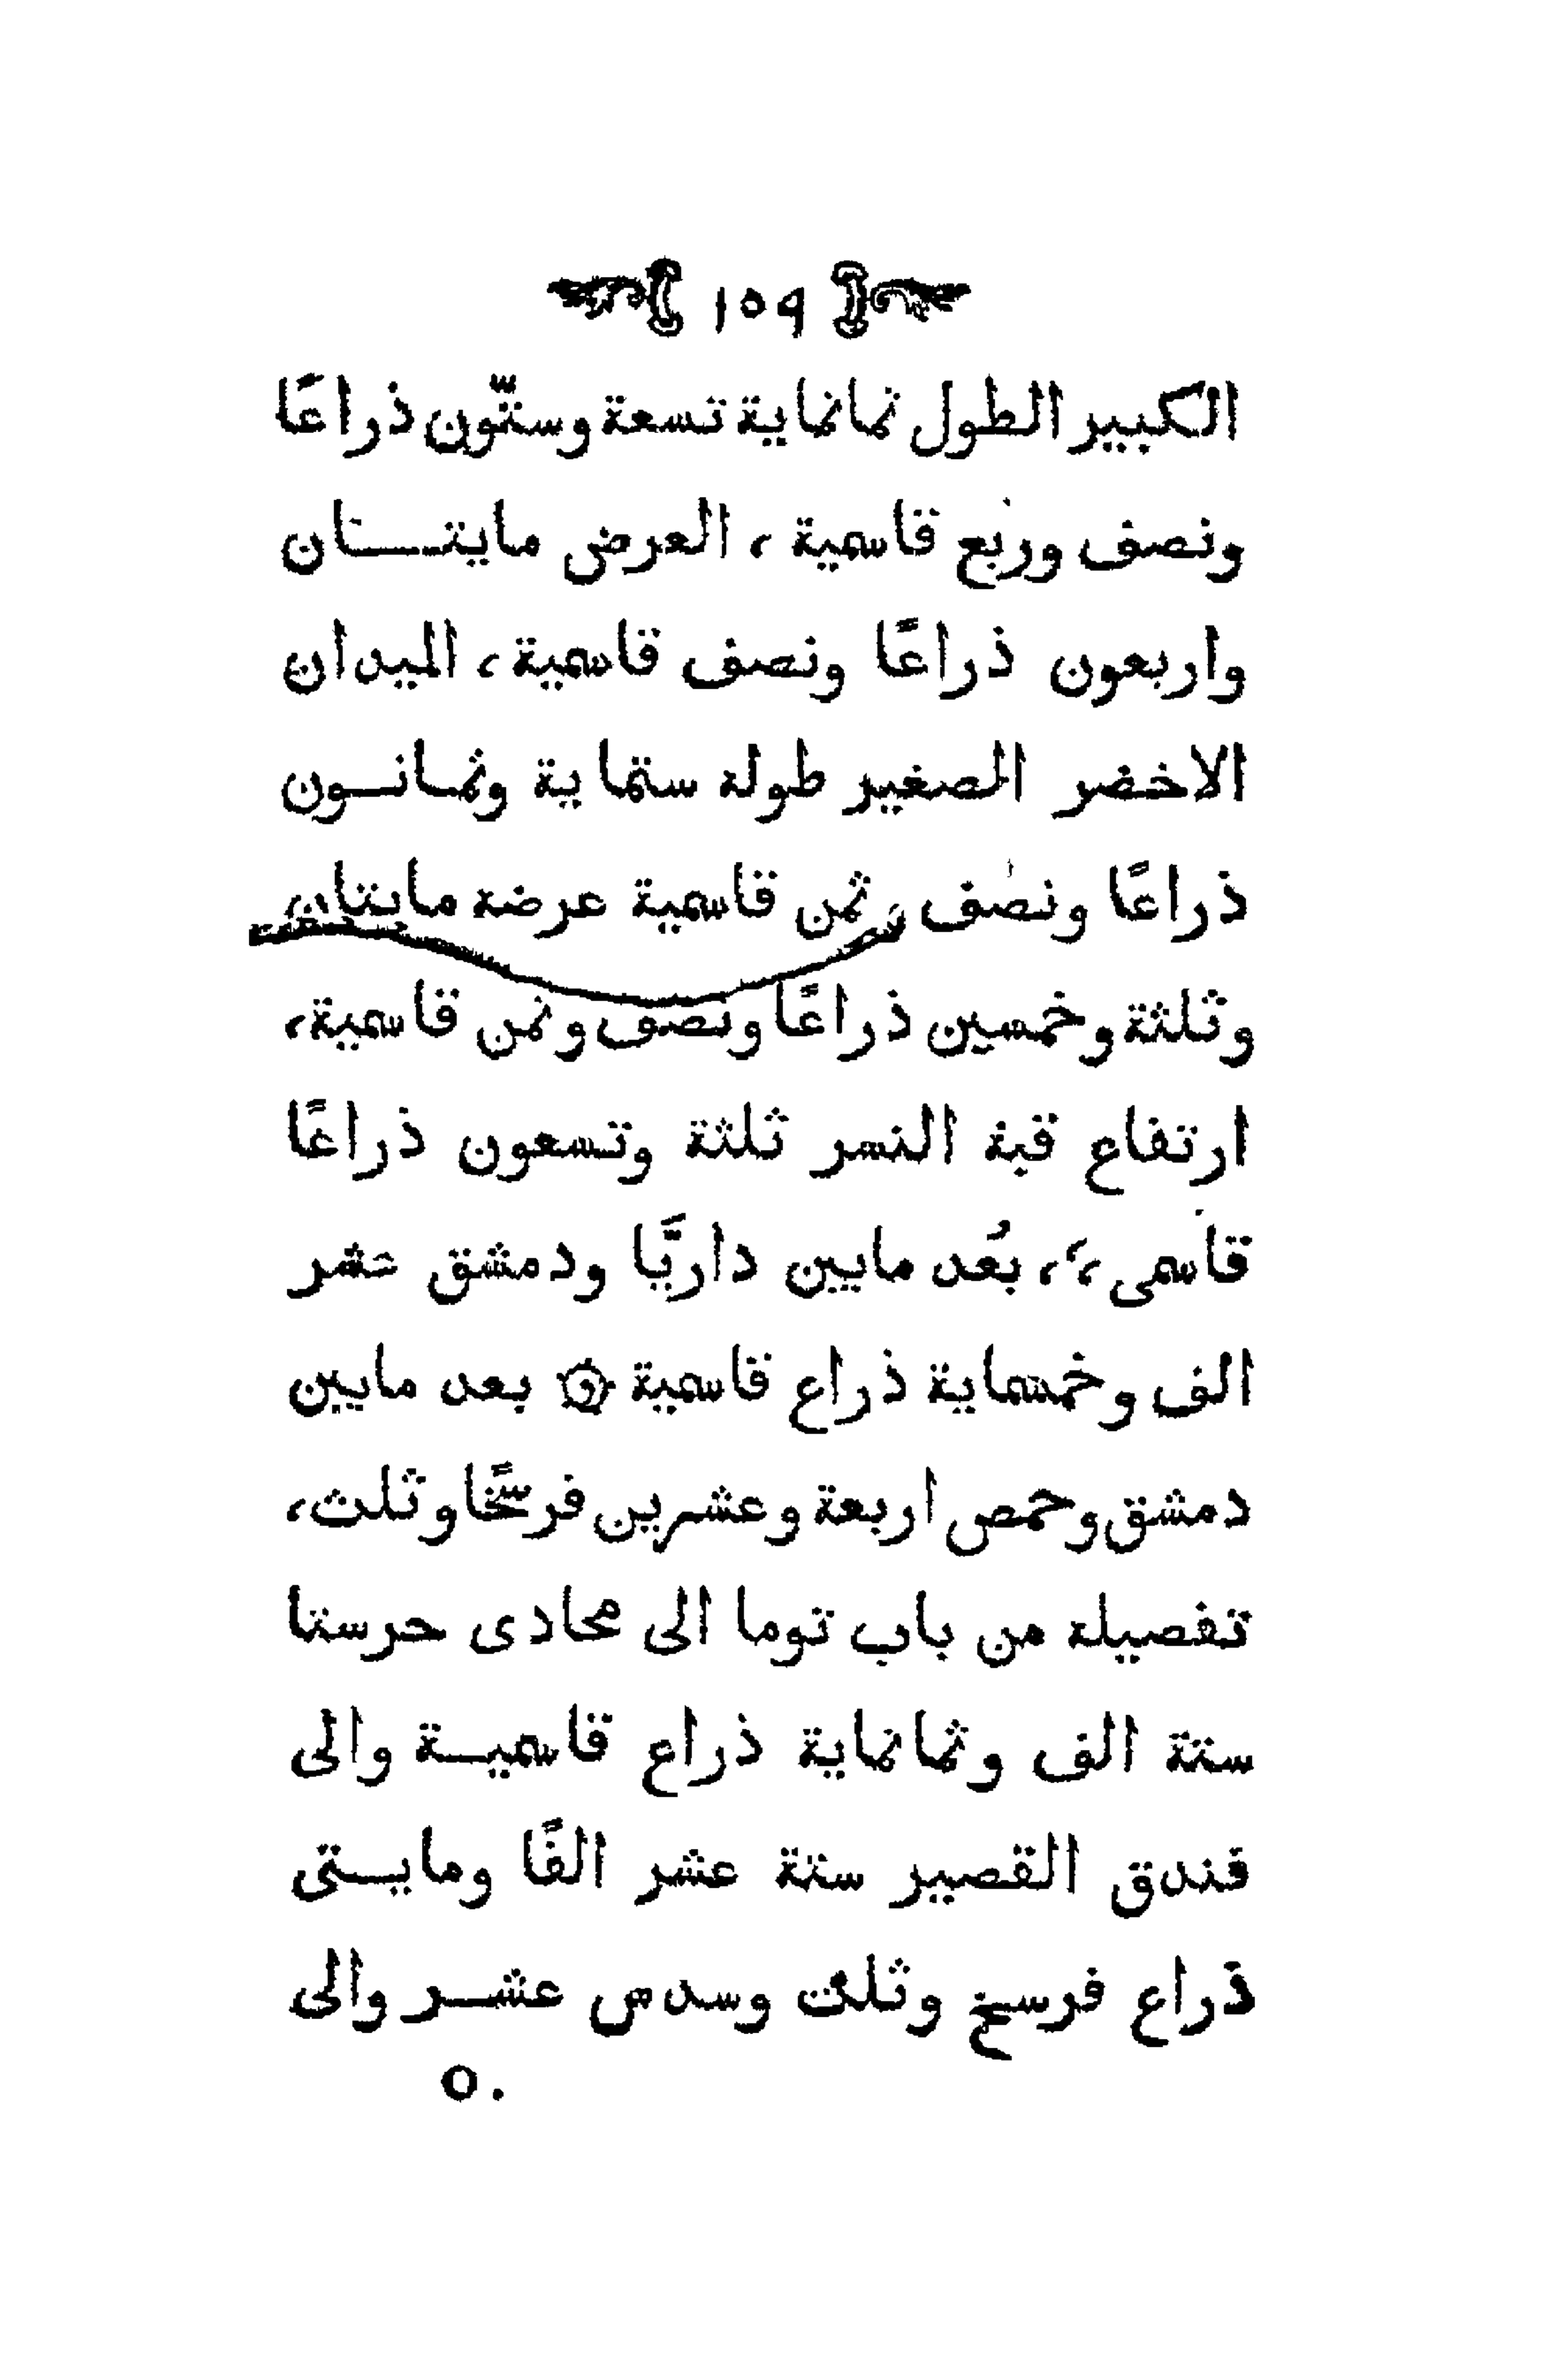 ١٥٩
الكبير الطول ثمانماية تسعة وستّون ذراعًا
ونصف وربع قاسمية ، العرض مايتـــان
واربعون ذراعًا ونصف قاسمية ، الميدان
الاخضر الصغير طوله ستماية وثمـانـــون
ذراعًا ونصف وثمن قاسمية عرضه مايتان
وثلثة وخمسين ذراعًا ونصف وثمن قاسمية ،
ارتفاع قبة النسر ثلثة وتسعون ذراعًا
قاسمى ،، بُعد مابين داريَّا ودمشق عشر
الف وخمسماية ذراع قاسمية ۞ بعد مابين
دمشق وحمص اربعة وعشرين فرسخًا وثلث ،
تفصيله من باب توما الى محادى حرستا
ستة الف وثمانماية ذراع قاسميـــة والى
فندق القصير ستة عشر الفًا ومايـــتى
ذراع فرسخ وثلث وسدس عشـــر والى
٥٠